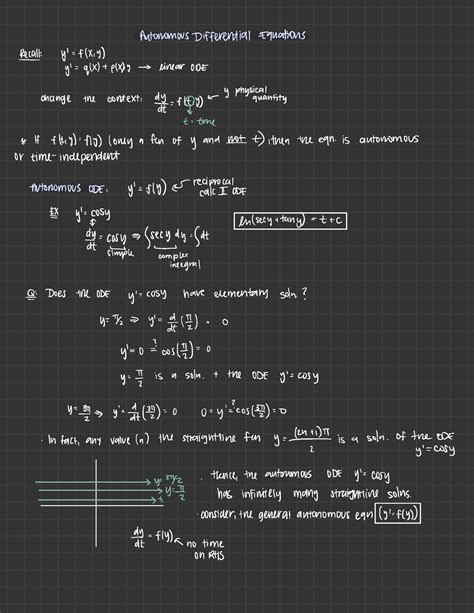 Autonomous Differential Equations
Recall: y' = f(x,y)
y' = q(x) + p(x)y → linear ODE
change the context: dy/dt = f(t,y) ← y physical quantity
t = time
* If f(t,y) = f(y) (only a fcn of y and not t), then the eqn. is autonomous
or time-independent
Autonomous ODE: y' = f(y) ← reciprocal calc II ODE
EX y' = cosy
dy/dt = cosy ⇒ ∫secy dy = ∫dt
simple complex integral
ln(secy + tany) = t + c
Q: Does the ODE y' = cosy have elementary soln?
y = π/2 ⇒ y' = d/dt (π/2) = 0
y' = 0 ?= cos(π/2) = 0
y = π/2 is a soln. t the ODE y' = cosy
y = 3π/2 ⇒ y' = d/dt (3π/2) = 0 0 = y' ?= cos(3π/2) = 0
· In fact, any value (n) the straightline fcn y = (2n+1)π/2 is a soln. of the ODE
y' = cosy
y = 3π/2
y = π/2
· Hence, the autonomous ODE y' = cosy
has infinitely many straightline solns.
· consider, the general autonomous eqn (y' = f(y))
dy/dt = f(y) ← no time
on RHS